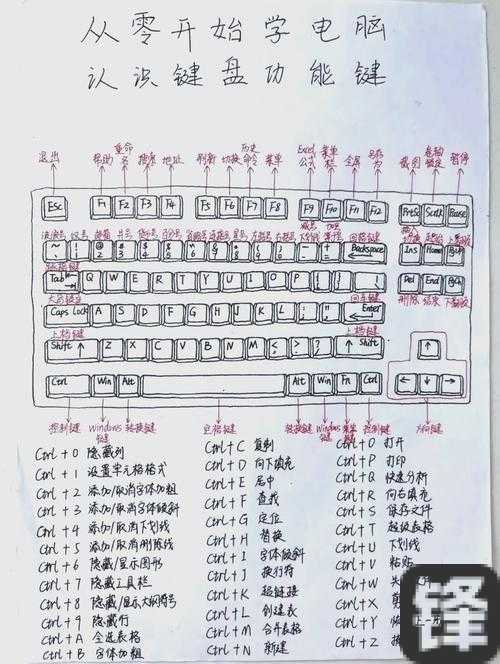 从零开始学电脑
认识键盘功能键
退出 帮助 重命名 搜索 地址 刷新 切换 历史命令 菜单 Excel公式 菜单栏 全屏 另存为 截图 卷轴锁定 暂停
Esc F1 F2 F3 F4 F5 F6 F7 F8 F9 F10 F11 F12 PrtSc Scrlk Pause
Backspace Ins Home PgUp
Tab Q W E R T Y U I O P Del End PgDn
删除 结束
Caps Lock A S D F G H J K L Enter
上档键 上档键
Shift ↑ Z X C V B N M ↑ Shift ↑
Ctrl Win Alt Alt Win Fn Ctrl ← ↓ →
控制键 Windows键 转换键 空格键 转换键 Windows键 控制键 方向键
Ctrl + 0 隐藏列
Ctrl + 1 设置单元格格式
Ctrl + 2 添加/取消字体加粗
Ctrl + 3 添加/取消字体倾斜
Ctrl + 4 添加/取消下划线
Ctrl + 5 添加/取消删除线
Ctrl + 6 隐藏/显示图形
Ctrl + 7 隐藏工具栏
Ctrl + 8 隐藏/显示大纲符号
Ctrl + 9 隐藏行
Ctrl + A 全选表格
Ctrl + B 字体加粗
Ctrl + C 复制
Ctrl + D 向下填充
Ctrl + E 居中
Ctrl + F 查找
Ctrl + G 定位
Ctrl + H 替换
Ctrl + I 字体倾斜
Ctrl + J 换行符
Ctrl + K 超链接
Ctrl + L 创建表
Ctrl + M 合并表格
Ctrl + N 新建
Ctrl + O 打开
Ctrl + P 打印
Ctrl + Q 快速分析
Ctrl + R 向右填充
Ctrl + S 保存文件
Ctrl + T 超级表格
Ctrl + U 下划线
Ctrl + V 粘贴
Ctrl + W
Ctrl + X
Ctrl + Y
Ctrl + Z
锋